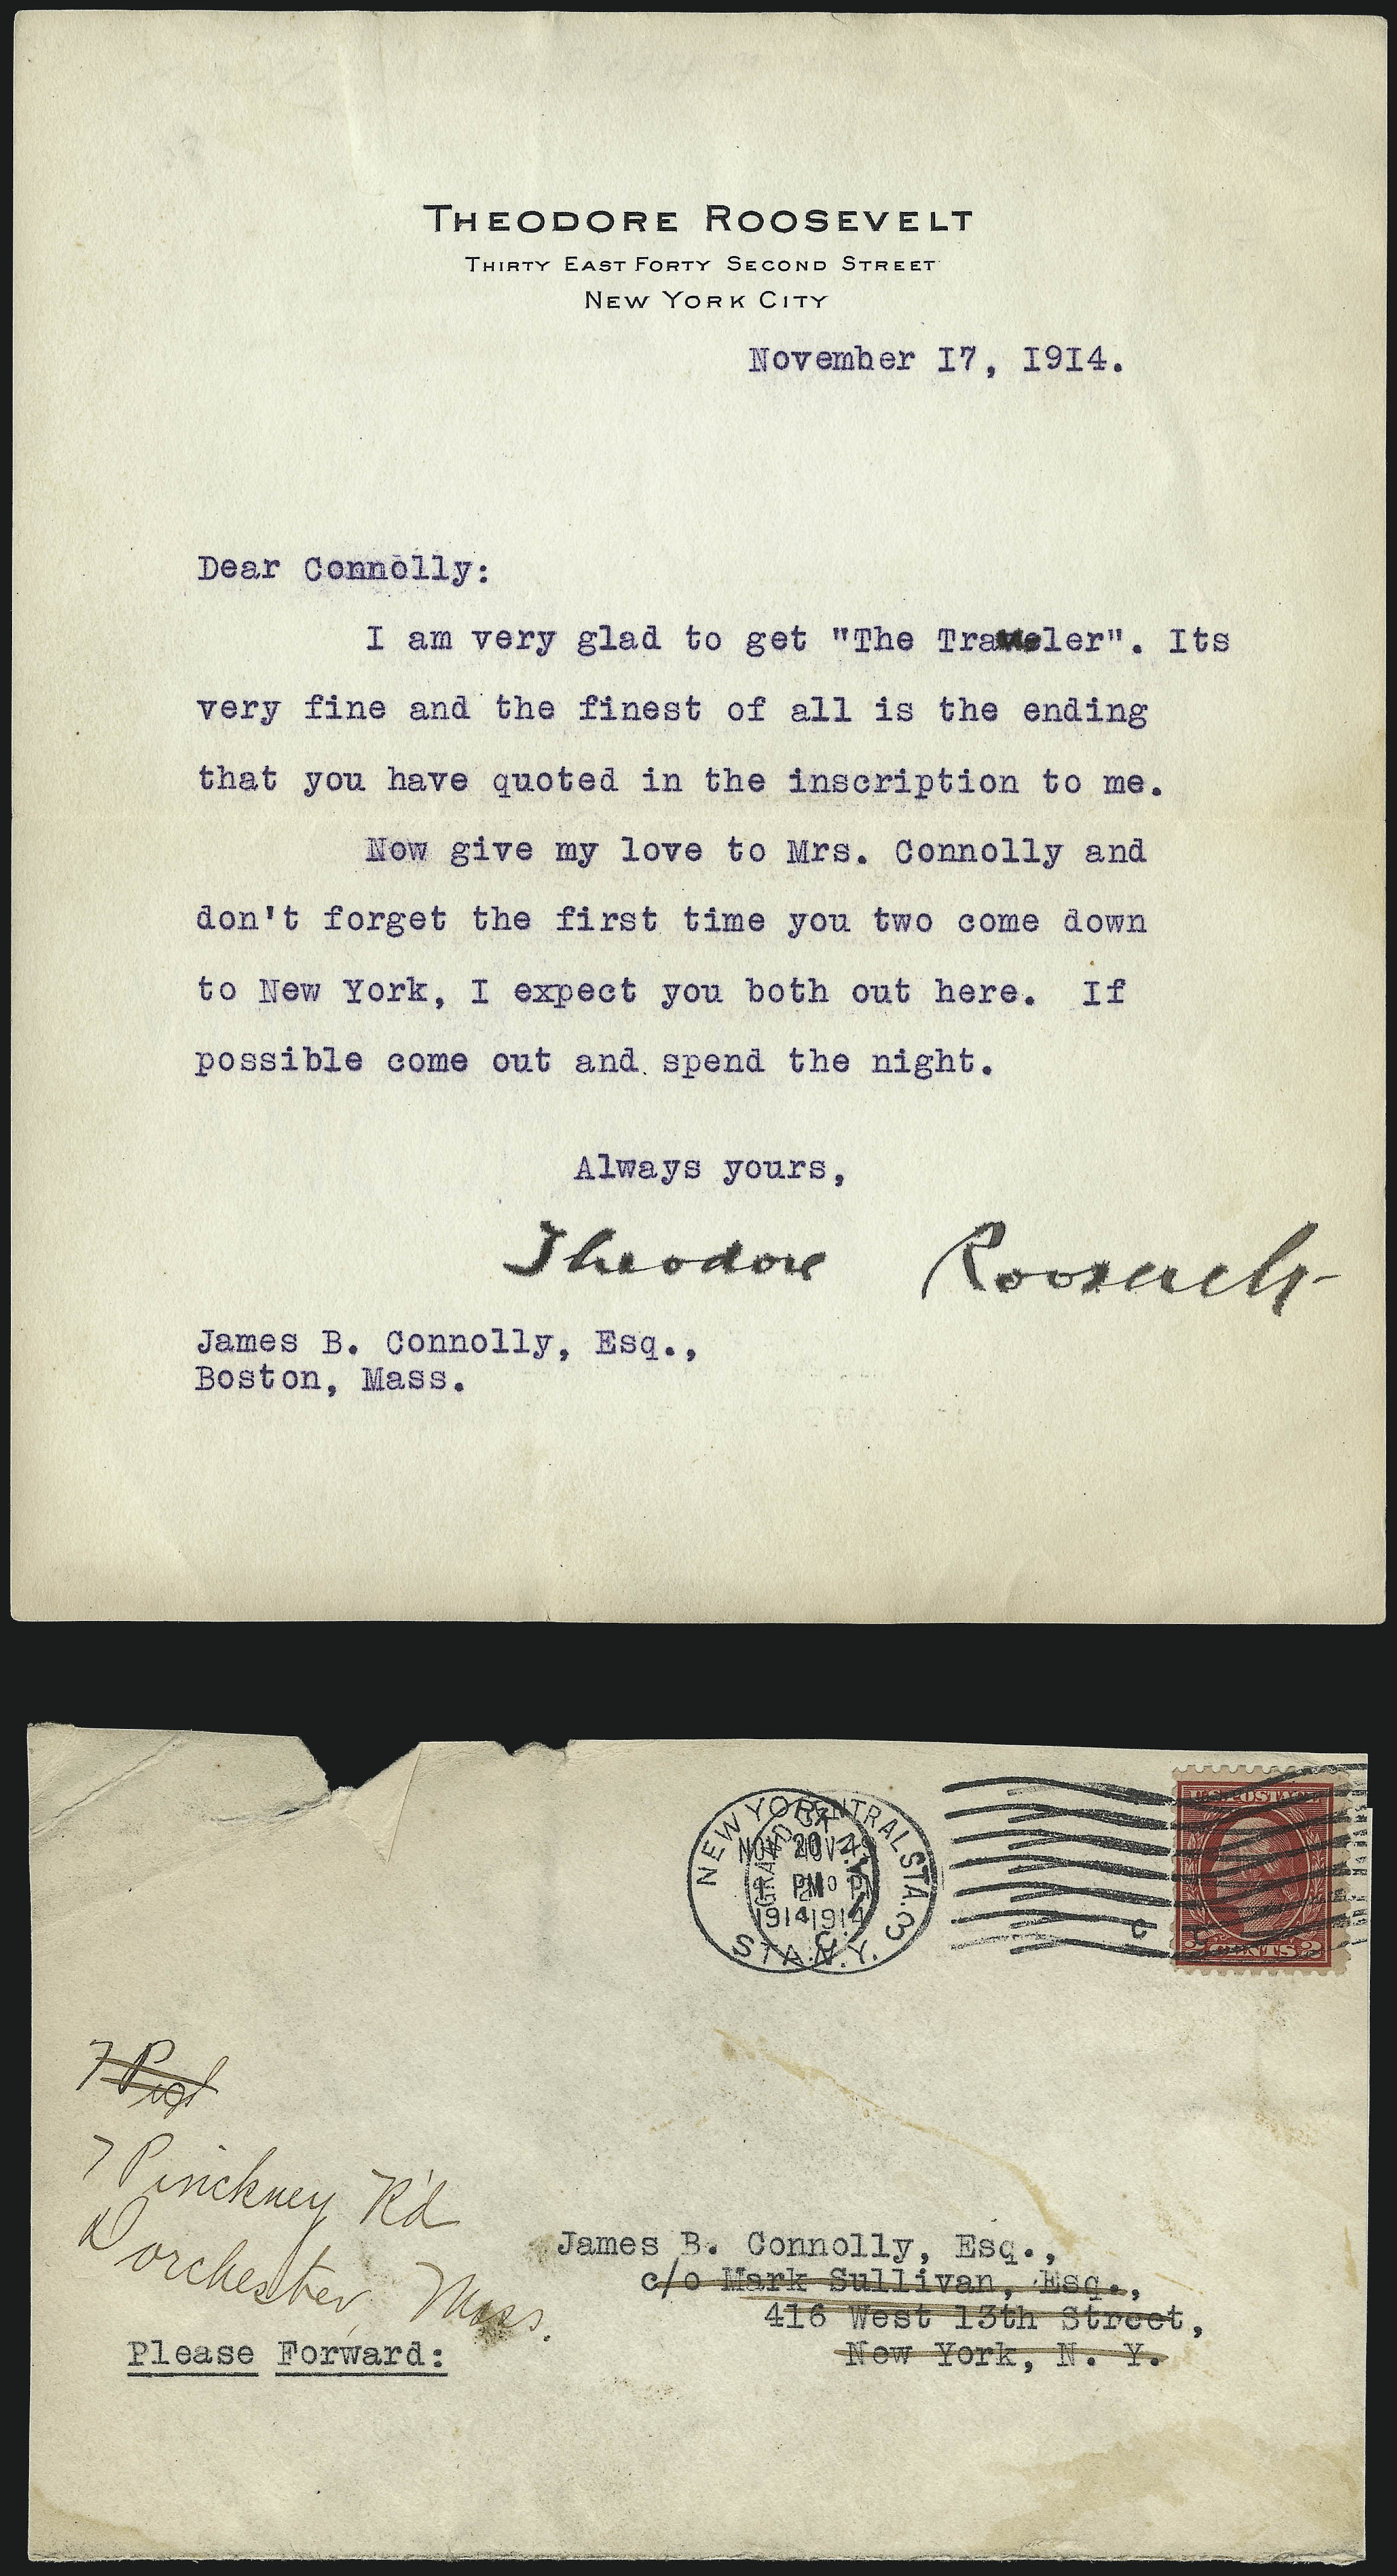 THEODORE ROOSEVELT
THIRTY EAST FORTY SECOND STREET
NEW YORK CITY
November 17, 1914.
Dear Connolly:
I am very glad to get "The Traveler". Its
very fine and the finest of all is the ending
that you have quoted in the inscription to me.
Now give my love to Mrs. Connolly and
don't forget the first time you two come down
to New York, I expect you both out here. If
possible come out and spend the night.
Always yours,
Theodore Roosevelt
James B. Connolly, Esq.,
Boston, Mass.
NEW YORK
GRAND CENTRAL STA.
NOV 20
NOV
PM
PM
1914
1914
STA. N.Y.
3
C C
2 CENTS 2
7
7 Pinckney R'd
Dorchester Mass.
Please Forward:
James B. Connolly, Esq.,
c/o Mark Sullivan, Esq.,
416 West 13th Street,
New York, N. Y.